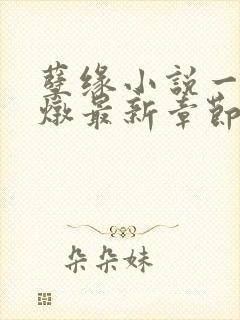 孽缘小説一
燉最新章節
朵朵妹